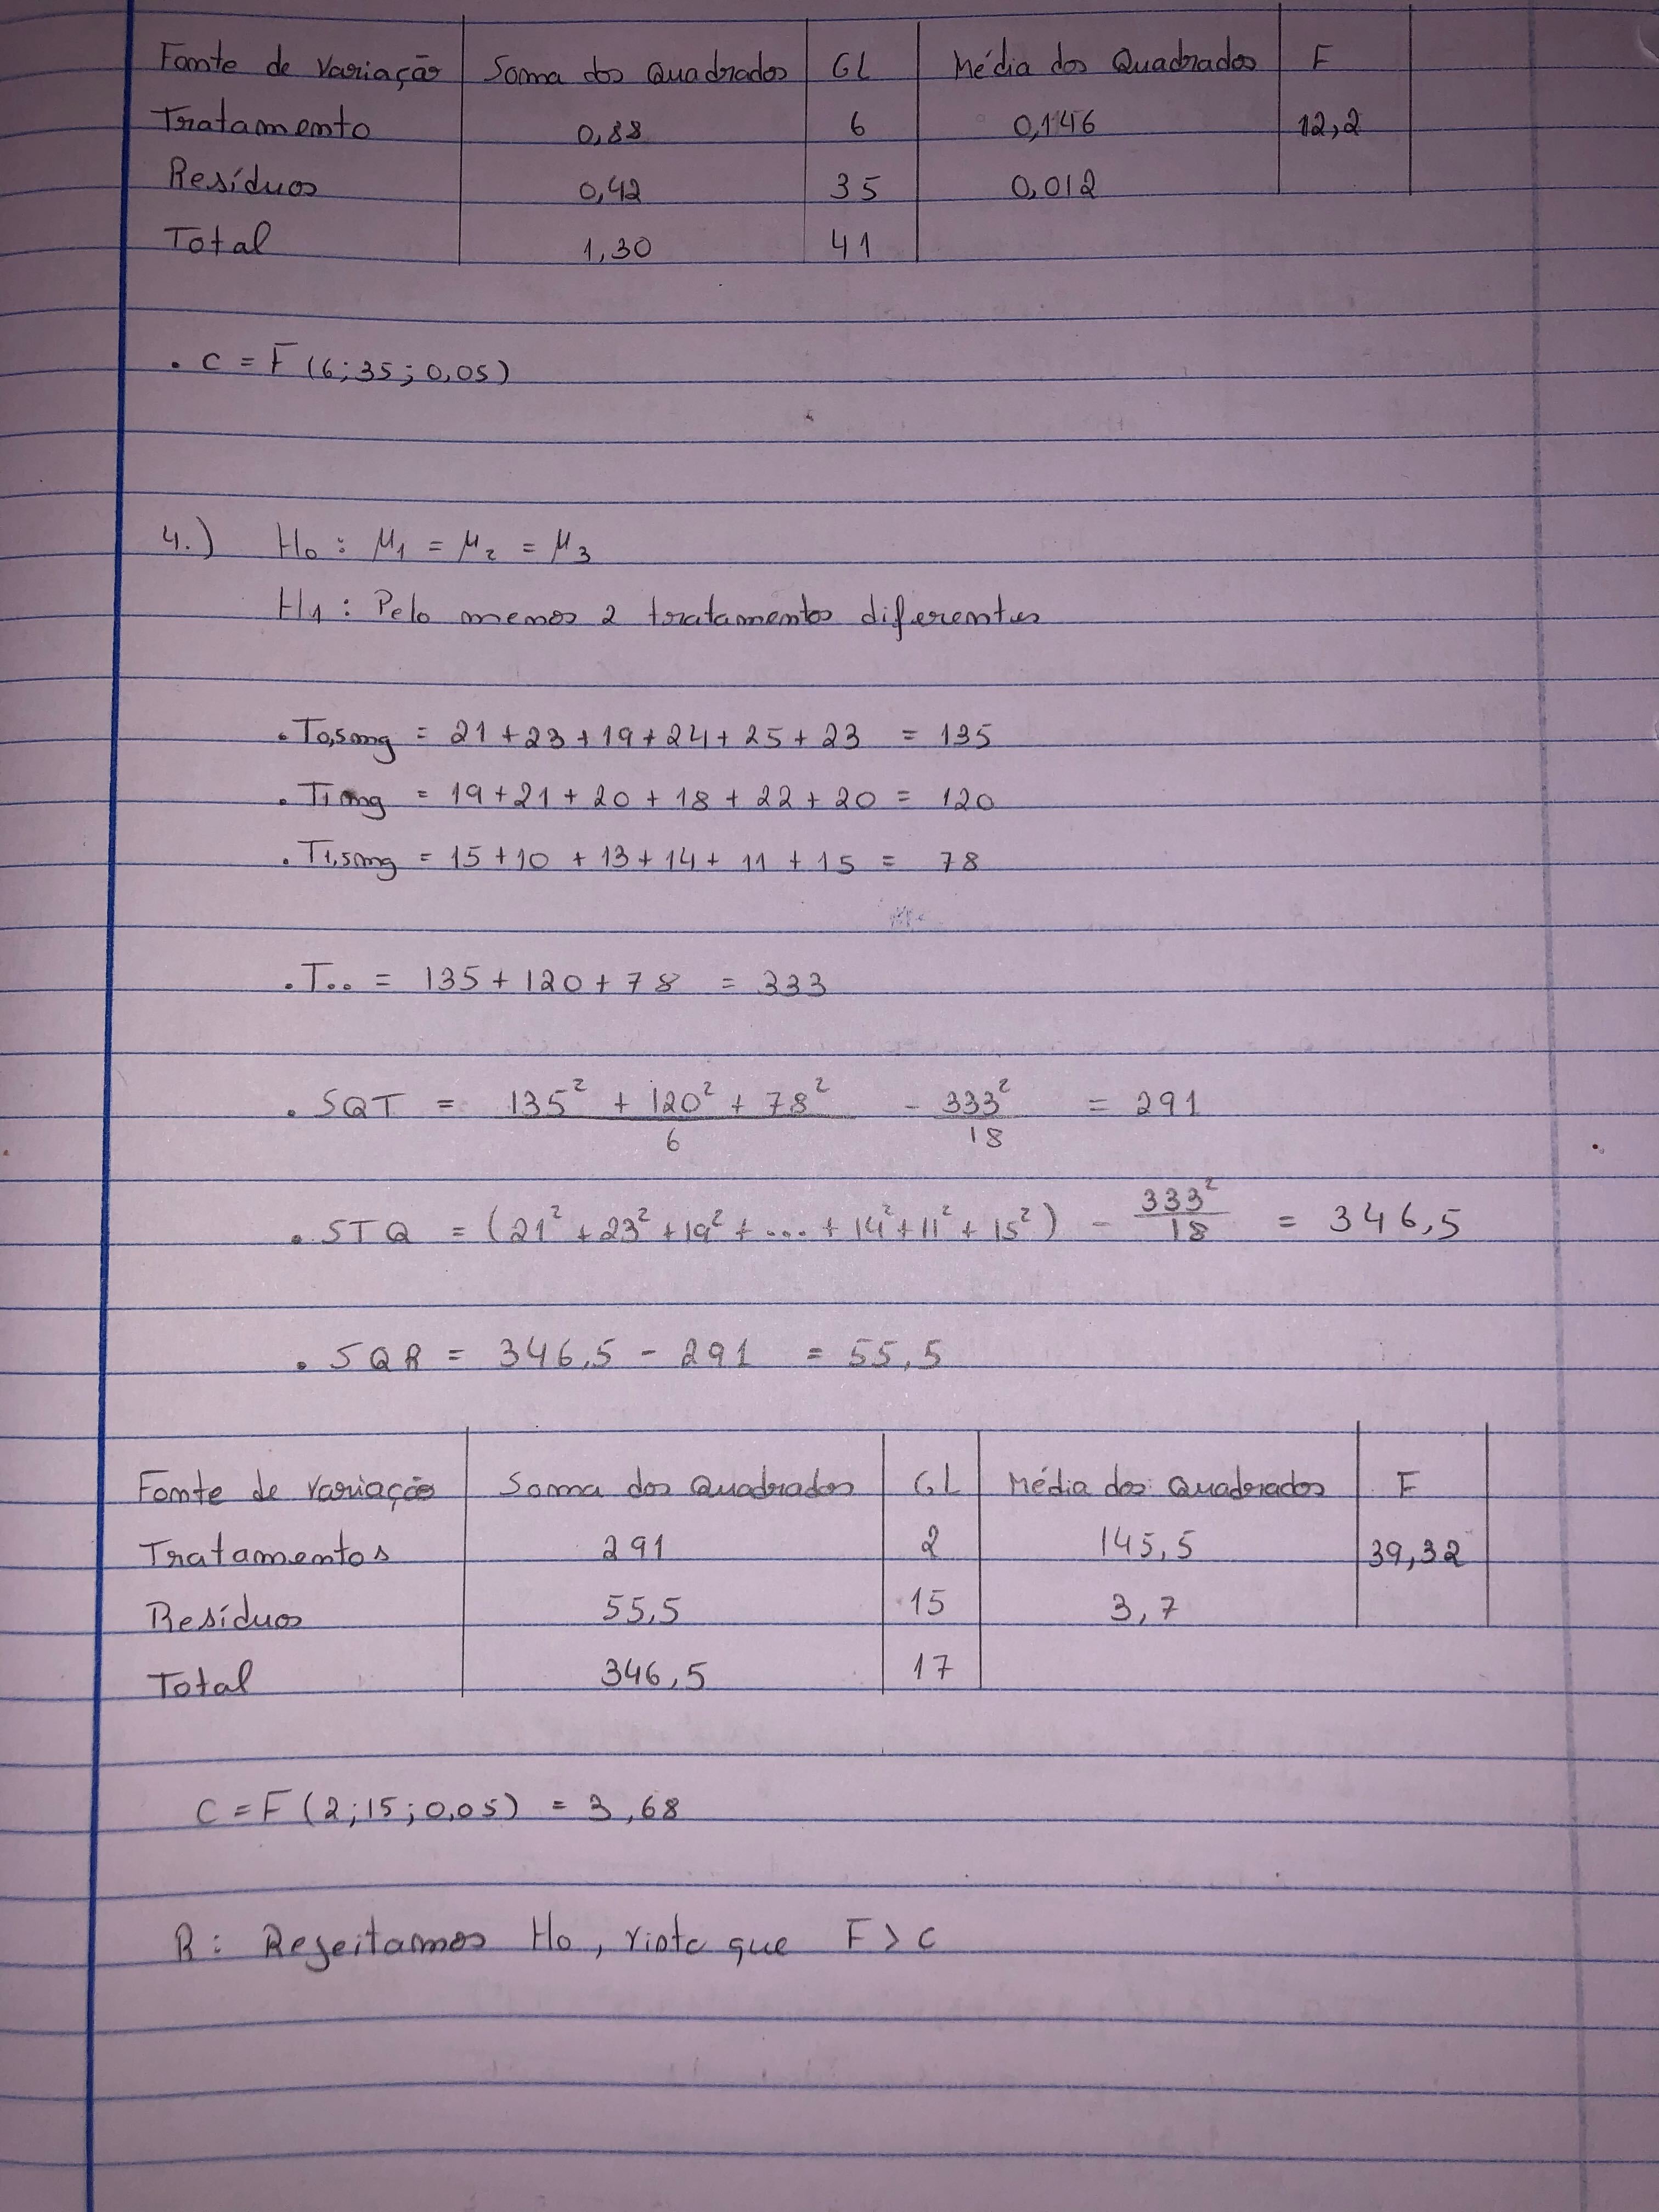 Fonte de Variação Soma dos Quadrados GL Média dos Quadrados F
Tratamento 0,88 6 0,146 12,2
Resíduos 0,42 35 0,012
Total 1,30 41
. C = F (6; 35; 0,05)
4.) H0 : μ1 = μ2 = μ3
H1 : Pelo menos 2 tratamentos diferentes
. T0,5mg = 21 + 23 + 19 + 24 + 25 + 23 = 135
. T1mg = 19 + 21 + 20 + 18 + 22 + 20 = 120
. T1,5mg = 15 + 10 + 13 + 14 + 11 + 15 = 78
. T.. = 135 + 120 + 78 = 333
. SQT = 135² + 120² + 78² / 6 - 333² / 18 = 291
. STQ = (21² + 23² + 19² + ... + 14² + 11² + 15²) - 333² / 18 = 346,5
. SQR = 346,5 - 291 = 55,5
Fonte de Variação Soma dos Quadrados GL Média dos Quadrados F
Tratamentos 291 2 145,5 39,32
Resíduos 55,5 15 3,7
Total 346,5 17
C = F (2; 15; 0,05) = 3,68
R: Rejeitamos H0, visto que F > C